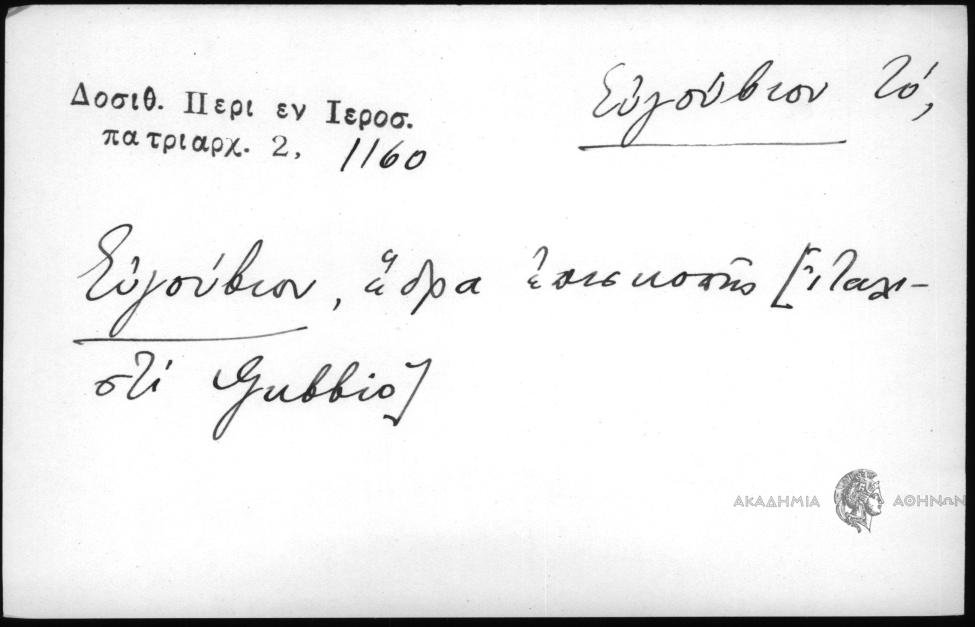 Δοσιθ. Περι εν Ιεροσ.
πατριαρχ. 2, 1160
Εὐγούβιον τό,
Εὐγούβιον, ἕδρα ἐπισκοπῆς [ἰταλι-
στί Gubbio]
ΑΚΑΔΗΜΙΑ ΑΘΗΝΩΝ